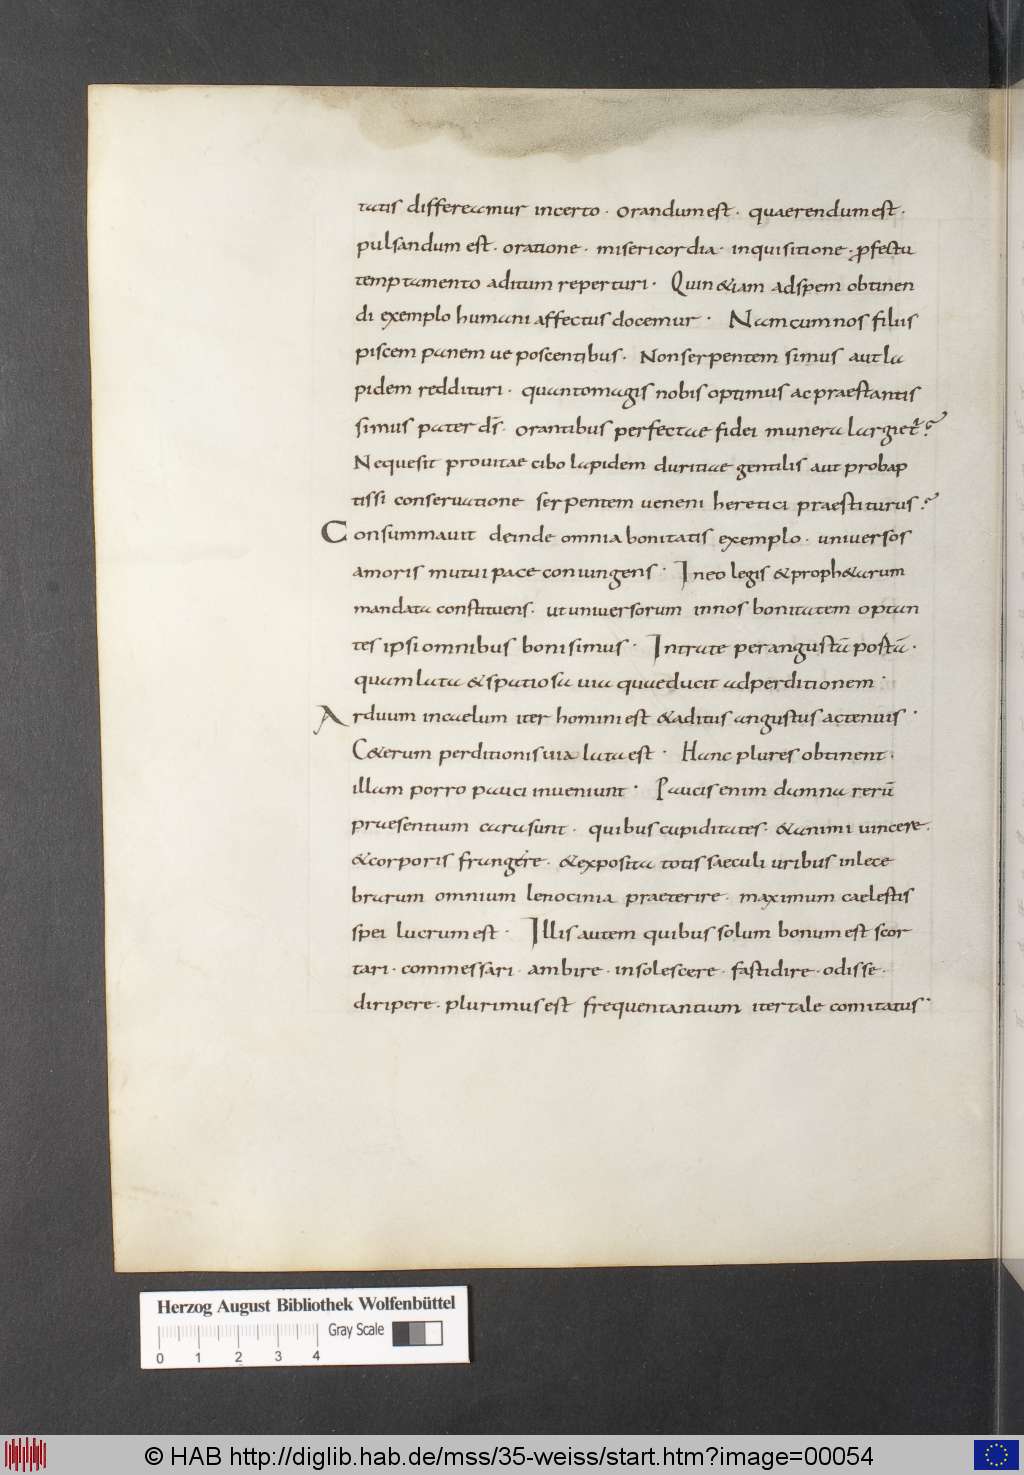 tatis differeamur incerto · orandum est · quaerendum est ·
pulsandum est · oratione · misericordia · inquisitione · ꝓfectu
temptamento aditum reperturi · Quin &iam ad spem obtinen
di exemplo humani affectus docemur · Nam cum nos filiis
piscem panem ue poscentibus · Non serpentem simus aut la
pidem reddituri · quanto magis nobis optimus ac praestantis
simus pater d̄s · orantibus perfectae fidei munera largiet̄?
Nequesit pro uitae cibo lapidem duritiae gentilis aut probap
tissi conseruatione serpentem ueneni heretici praestiturus?
Consummauit deinde omnia bonitatis exemplo · uniuersos
amoris mutui pace coniungens · In eo legis & proph&arum
mandata constituens · ut uniuersorum in nos bonitatem optan
tes ipsi omnibus boni simus · Intrate per angustā postā ·
quam lata & spatiosa uia quae ducit ad perditionem ·
Arduum in caelum iter homini est & aditus angustus ac tenuis ·
C&erum perditionis uia lata est · Hanc plures obtinent ·
illam porro pauci inueniunt · Paucis enim damna rerū
praesentium cara sunt · quibus cupiditates · & animi uincere ·
& corporis frangere · & exposita totis saeculi uiribus inlece
brarum omnium lenocinia praeterire · maximum caelestis
spei lucrum est · Illis autem quibus solum bonum est scor
tari · commessari · ambire · insolescere · fastidire · odisse ·
diripere · plurimus est frequentantium iter tale comitatus ·
Herzog August Bibliothek Wolfenbüttel
Gray Scale
0 1 2 3 4
© HAB http://diglib.hab.de/mss/35-weiss/start.htm?image=00054